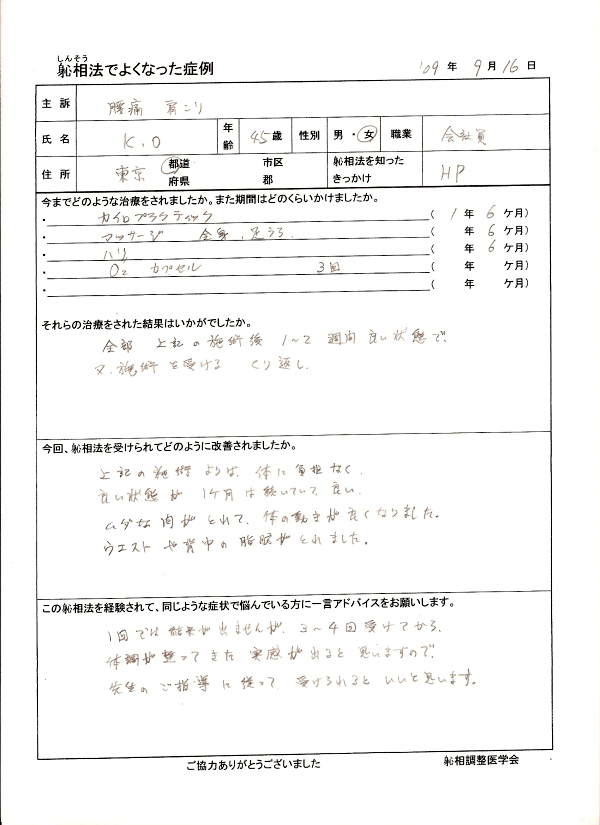 しんそう
躰相法でよくなった症例 '09 年 9 月 16 日
主 訴 腰痛 肩こり
氏 名 K.O 年齢 45歳 性別 男・女 職業 会社員
住 所 東京 都道府県 市区郡 躰相法を知ったきっかけ HP
今までどのような治療をされましたか。また期間はどのくらいかけましたか。
・ カイロプラクティック ( 1 年 6 ケ月)
・ マッサージ 全身、足うら ( 年 6 ケ月)
・ ハリ ( 年 6 ケ月)
・ O2 カプセル 3回 ( 年 ケ月)
・ ( 年 ケ月)
それらの治療をされた結果はいかがでしたか。
全部 上記の施術後 1〜2 週間 良い状態で、
又、施術を受ける くり返し。
今回、躰相法を受けられてどのように改善されましたか。
上記の施術よりは、体に負担なく、
良い状態が 1ケ月は続いていて 良い。
ムダな肉がとれて、体の動きが良くなりました。
ウエストや背中の脂肪がとれました。
この躰相法を経験されて、同じような症状で悩んでいる方に一言アドバイスをお願いします。
1回では結果が出ませんが、3〜4回受けてから、
体調が整ってきた 実感が出ると思いますので、
先生のご指導に従って 受けられると いいと思います。
ご協力ありがとうございました
躰相調整医学会